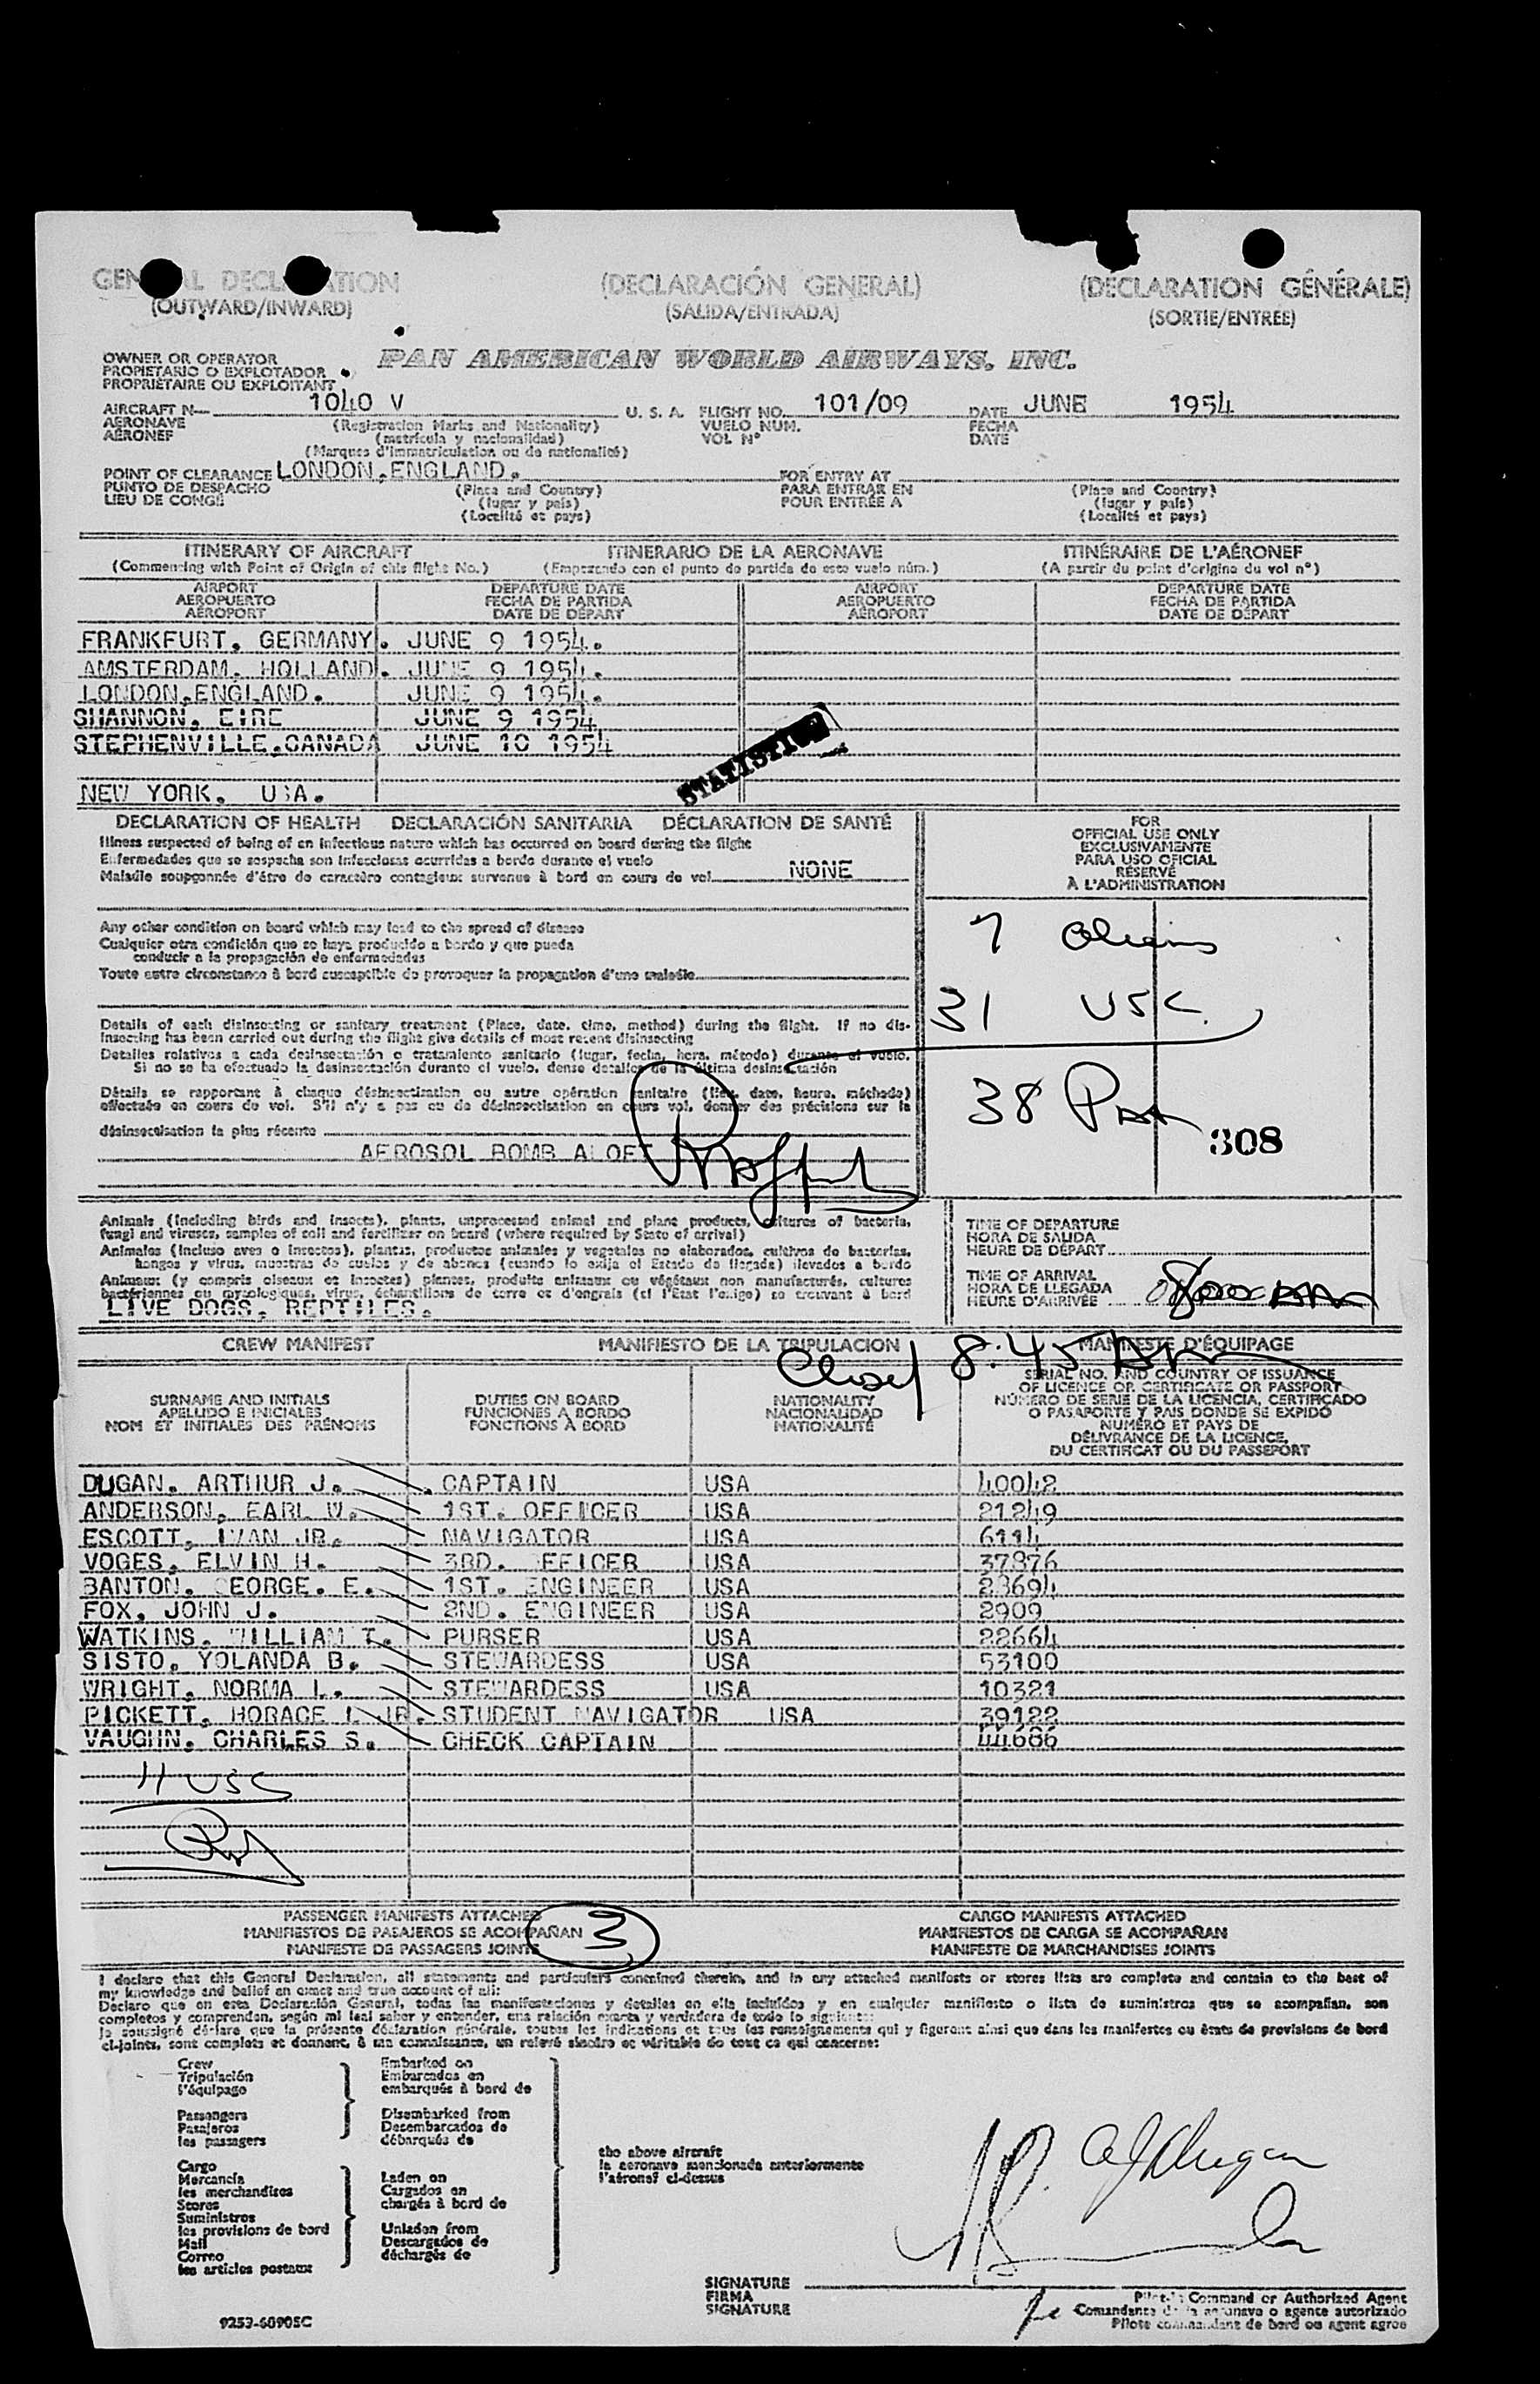 GENERAL DECLARATION (DECLARACIÓN GENERAL) (DÉCLARATION GÉNÉRALE)
(OUTWARD/INWARD) (SALIDA/ENTRADA) (SORTIE/ENTRÉE)
OWNER OR OPERATOR
PROPIETARIO O EXPLOTADOR
PROPRIÉTAIRE OU EXPLOITANT
PAN AMERICAN WORLD AIRWAYS, INC.
AIRCRAFT N— 1040 V U. S. A. FLIGHT NO. 101/09 DATE JUNE 1954
AERONAVE (Registration Marks and Nationality) VUELO NUM. FECHA
AÉRONEF (matrícula y nacionalidad) VOL Nº DATE
(Marques d'immatriculation ou de nationalité)
POINT OF CLEARANCE LONDON,ENGLAND. FOR ENTRY AT
PUNTO DE DESPACHO (Place and Country) PARA ENTRAR EN (Place and Country)
LIEU DE CONGÉ (lugar y país) POUR ENTRÉE A (lugar y país)
(Localité et pays) (Localité et pays)
ITINERARY OF AIRCRAFT ITINERARIO DE LA AERONAVE ITINÉRAIRE DE L'AÉRONEF
(Commencing with Point of Origin of this flight No.) (Empezando con el punto de partida de este vuelo núm.) (A partir du point d'origine du vol nº)
AIRPORT DEPARTURE DATE AIRPORT DEPARTURE DATE
AEROPUERTO FECHA DE PARTIDA AEROPUERTO FECHA DE PARTIDA
AÉROPORT DATE DE DÉPART AÉROPORT DATE DE DÉPART
FRANKFURT, GERMANY. JUNE 9 1954.
AMSTERDAM, HOLLAND. JUNE 9 1954.
LONDON,ENGLAND. JUNE 9 1954.
SHANNON, EIRE JUNE 9 1954
STEPHENVILLE,CANADA JUNE 10 1954
STATISTICS
NEW YORK, USA.
DECLARATION OF HEALTH DECLARACIÓN SANITARIA DÉCLARATION DE SANTÉ
Illness suspected of being of an infectious nature which has occurred on board during the flight
Enfermedades que se sospecha son infecciosas ocurridas a bordo durante el vuelo
Maladie soupçonnée d'être de caractère contagieux survenue à bord en cours de vol NONE
Any other condition on board which may lead to the spread of disease
Cualquier otra condición que se haya producido a bordo y que pueda
conducir a la propagación de enfermedades
Toute autre circonstance à bord susceptible de provoquer la propagation d'une maladie
Details of each disinsecting or sanitary treatment (Place, date, time, method) during the flight. If no dis-
insecting has been carried out during the flight give details of most recent disinsecting
Detalles relativos a cada desinsectación o tratamiento sanitario (lugar, fecha, hora, método) durante el vuelo.
Si no se ha efectuado la desinsectación durante el vuelo, dense detalles de la última desinsectación
Détails se rapportant à chaque désinsectisation ou autre opération sanitaire (lieu, date, heure, méthode)
effectuée en cours de vol. S'il n'y a pas eu de désinsectisation en cours vol, donner des précisions sur la
désinsectisation la plus récente
AEROSOL BOMB ALOFT
FOR
OFFICIAL USE ONLY
EXCLUSIVAMENTE
PARA USO OFICIAL
RÉSERVÉ
À L'ADMINISTRATION
7 aliens
31 USC.
38 Pax
808
Animals (including birds and insects), plants, unprocessed animal and plant products, cultures of bacteria,
fungi and viruses, samples of soil and fertilizer on board (where required by State of arrival)
Animales (incluso aves o insectos), plantas, productos animales y vegetales no elaborados, cultivos de bacterias,
hongos y virus, muestras de suelos y de abonos (cuando lo exija el Estado de llegada) llevados a bordo
Animaux (y compris oiseaux et insectes) plantes, produits animaux ou végétaux non manufacturés, cultures
bactériennes ou mycologiques, virus, échantillons de terre et d'engrais (si l'État l'exige) se trouvant à bord
LIVE DOGS, REPTILES.
TIME OF DEPARTURE
HORA DE SALIDA
HEURE DE DÉPART
TIME OF ARRIVAL
HORA DE LLEGADA
HEURE D'ARRIVÉE
8:45 AM
CREW MANIFEST MANIFIESTO DE LA TRIPULACION MANIFESTE D'ÉQUIPAGE
SURNAME AND INITIALS
APELLIDO E INICIALES
NOM ET INITIALES DES PRÉNOMS
DUTIES ON BOARD
FUNCIONES A BORDO
FONCTIONS À BORD
NATIONALITY
NACIONALIDAD
NATIONALITÉ
SERIAL NO. AND COUNTRY OF ISSUANCE
OF LICENCE OR CERTIFICATE OR PASSPORT
NÚMERO DE SERIE DE LA LICENCIA, CERTIFICADO
O PASAPORTE Y PAIS DONDE SE EXPIDÓ
NUMÉRO ET PAYS DE
DÉLIVRANCE DE LA LICENCE,
DU CERTIFICAT OU DU PASSEPORT
DUGAN, ARTHUR J. CAPTAIN USA 40042
ANDERSON, EARL W. 1ST. OFFICER USA 21249
ESCOTT, IVAN JR. NAVIGATOR USA 6114
VOGES, ELVIN H. 3RD. OFFICER USA 37876
BANTON, GEORGE. E. 1ST. ENGINEER USA 28694
FOX, JOHN J. 2ND. ENGINEER USA 2909
WATKINS, WILLIAM T. PURSER USA 22664
SISTO, YOLANDA B. STEWARDESS USA 53100
WRIGHT, NORMA L. STEWARDESS USA 10321
PICKETT, HORACE L JR. STUDENT NAVIGATOR USA 39122
VAUGHN, CHARLES S. CHECK CAPTAIN 44686
11 USC
PASSENGER MANIFESTS ATTACHED CARGO MANIFESTS ATTACHED
MANIFIESTOS DE PASAJEROS SE ACOMPAÑAN 3 MANIFIESTOS DE CARGA SE ACOMPAÑAN
MANIFESTE DE PASSAGERS JOINTS MANIFESTE DE MARCHANDISES JOINTS
I declare that this General Declaration, all statements and particulars contained therein, and in any attached manifests or stores lists are complete and contain to the best of
my knowledge and belief an exact and true account of all:
Declaro que en esta Declaración General, todas las manifestaciones y detalles en ella incluídos y en cualquier manifiesto o lista de suministros que se acompañan, son
completos y comprenden, según mi leal saber y entender, una relación exacta y verdadera de todo lo siguiente:
Je soussigné déclare que la présente déclaration générale, toutes les indications et tous les renseignements qui y figurent ainsi que dans les manifestes ou états de provisions de bord
ci-joints, sont complets et donnent, à ma connaissance, un relevé sincère et véritable de tout ce qui concerne:
Crew Embarked on
Tripulación Embarcados en
l'équipage embarqués à bord de
Passengers Disembarked from
Pasajeros Desembarcados de
les passagers débarqués de
the above aircraft
la aeronave mencionada anteriormente
l'aéronef ci-dessus
Cargo
Mercancía Laden on
les merchandises Cargados en
Stores chargés à bord de
Suministros
les provisions de bord Unladen from
Mail Descargados de
Correo déchargés de
les articles postaux
AJDugan
SIGNATURE
FIRMA
SIGNATURE
Pilot-in Command or Authorized Agent
Comandante de la aeronave o agente autorizado
Pilote commandant de bord ou agent agréé
9253-60905C